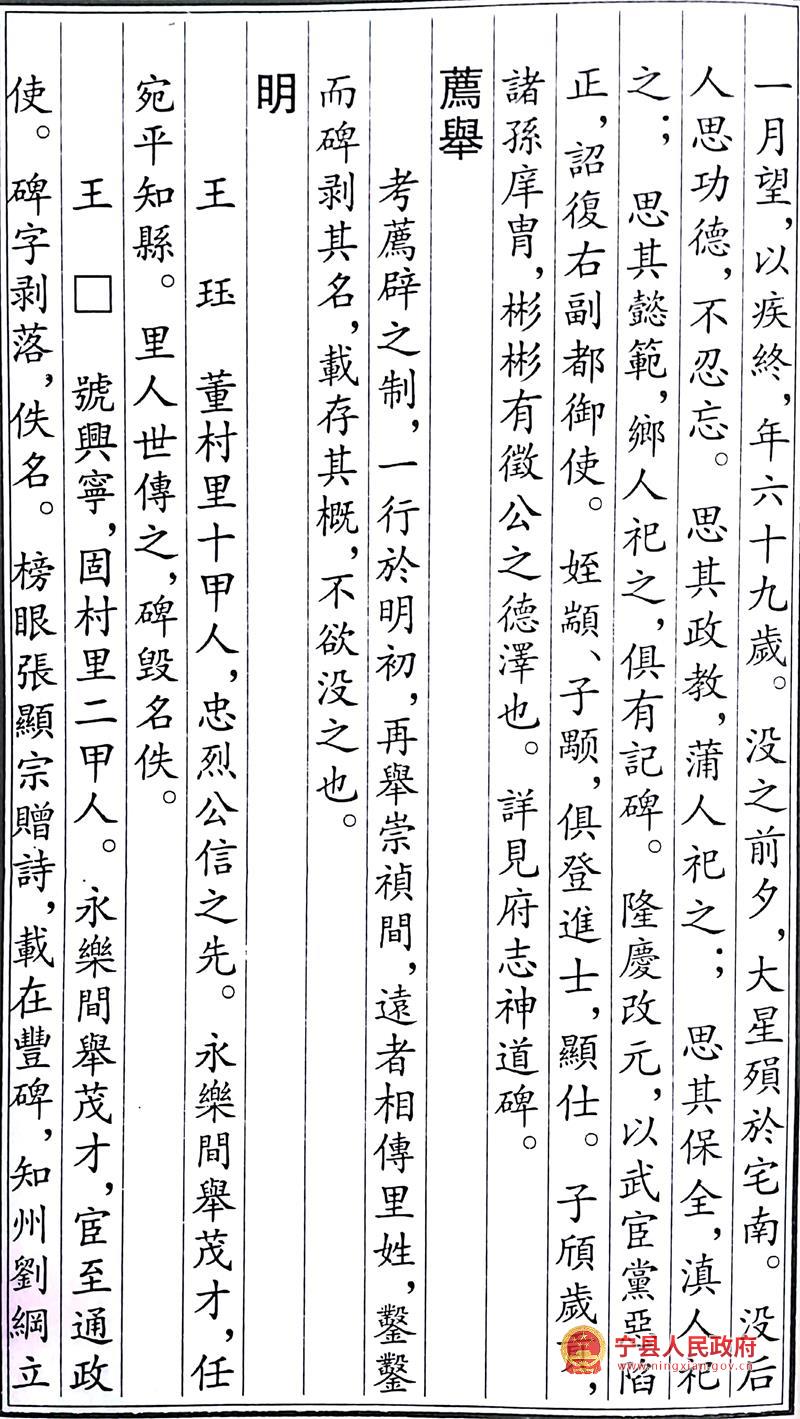 一月望，以疾終，年六十九歲。没之前夕，大星殞於宅南。没后
人思功德，不忍忘。思其政教，蒲人祀之；思其保全，滇人祀
之；思其懿範，鄉人祀之，俱有記碑。隆慶改元，以武宦黨惡陷
正，詔復右副都御使。姪顓、子顒，俱登進士，顯仕。子頎歲，
諸孫庠胄，彬彬有徵公之德澤也。詳見府志神道碑。
薦舉
考薦辟之制，一行於明初，再舉崇禎間，遠者相傳里姓，鑿鑿
而碑剥其名，載存其概，不欲没之也。
明
王　珏　董村里十甲人，忠烈公信之先。永樂間舉茂才，任
宛平知縣。里人世傳之，碑毁名佚。
王　□　號興寧，固村里二甲人。永樂間舉茂才，宦至通政
使。碑字剥落，佚名。榜眼張顯宗贈詩，載在豐碑，知州劉綱立
宁县人民政府
www.ningxian.gov.cn